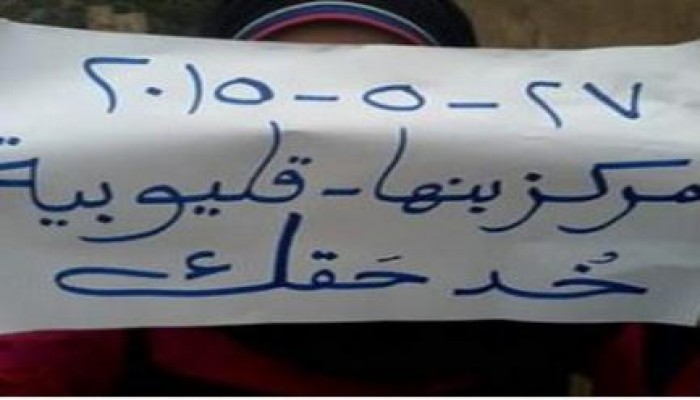 ٢٧ - ٥ - ٢٠١٥
مركز بنها - قليوبية
خُد حَقك